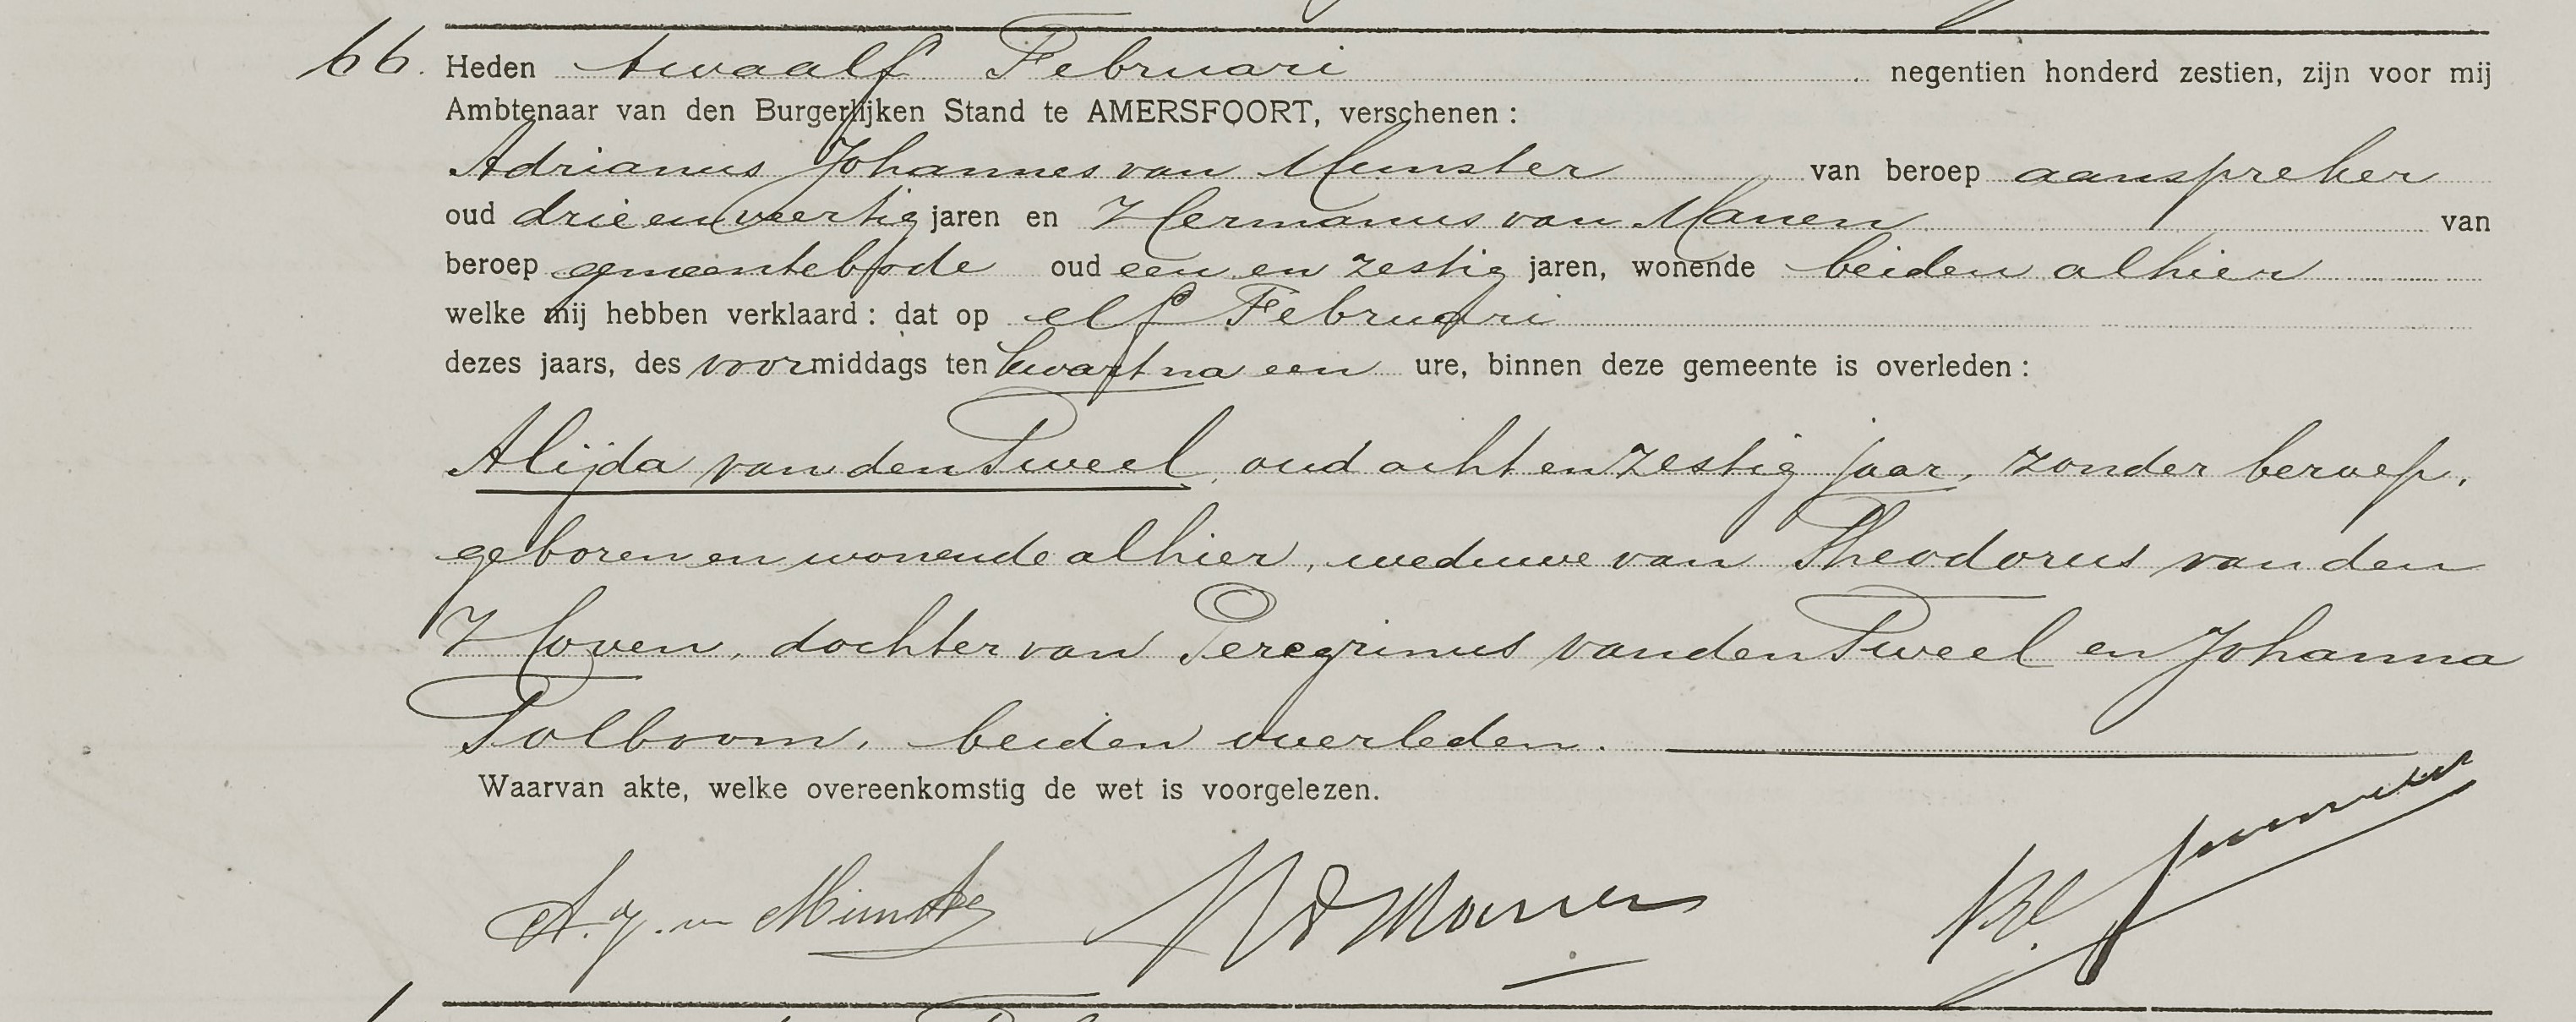 66. Heden twaalf Februari negentien honderd zestien, zijn voor mij
Ambtenaar van den Burgerlijken Stand te AMERSFOORT, verschenen :
Adrianus Johannes van Munster van beroep aanspreker
oud drie en veertig jaren en Hermanus van Manen van
beroep gemeentebode oud een en zestig jaren, wonende beiden alhier
welke mij hebben verklaard : dat op elf Februari
dezes jaars, des voormiddags ten kwart na een ure, binnen deze gemeente is overleden :
Alijda van den Tweel, oud acht en zestig jaar, zonder beroep,
geboren en wonende alhier, weduwe van Theodorus van den
Hoven, dochter van Peregrinus van den Tweel en Johanna
Tolboom, beiden overleden.
Waarvan akte, welke overeenkomstig de wet is voorgelezen.
A. J. v Munster H v Manen